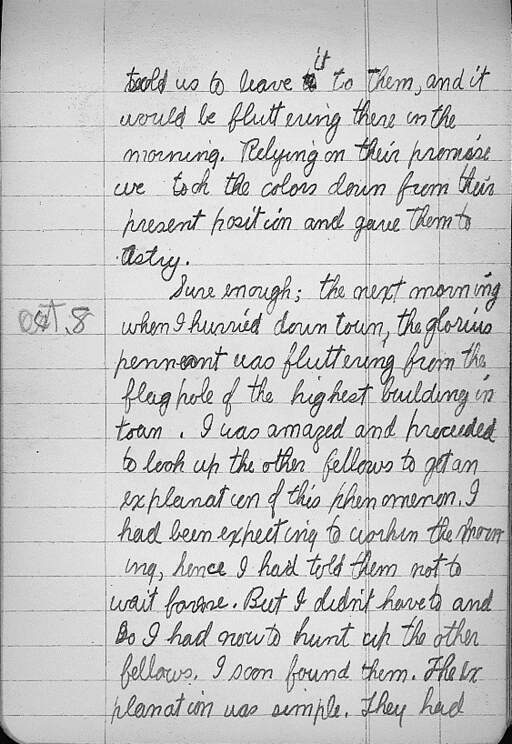 told us to leave it to them, and it
would be fluttering there in the
morning. Relying on their promise
we took the colors down from their
present position and gave them to
Astry.
Sure enough; the next morning
Oct. 8 when I hurried down town, the glorius
pennant was fluttering from the
flag pole of the highest building in
town. I was amazed and proceeded
to look up the other fellows to get an
explanation of this phenomenon. I
had been expecting to work in the morn
ing, hence I had told them not to
wait for me. But I didn't have to and
so I had now to hunt up the other
fellows. I soon found them. The ex
planation was simple. They had